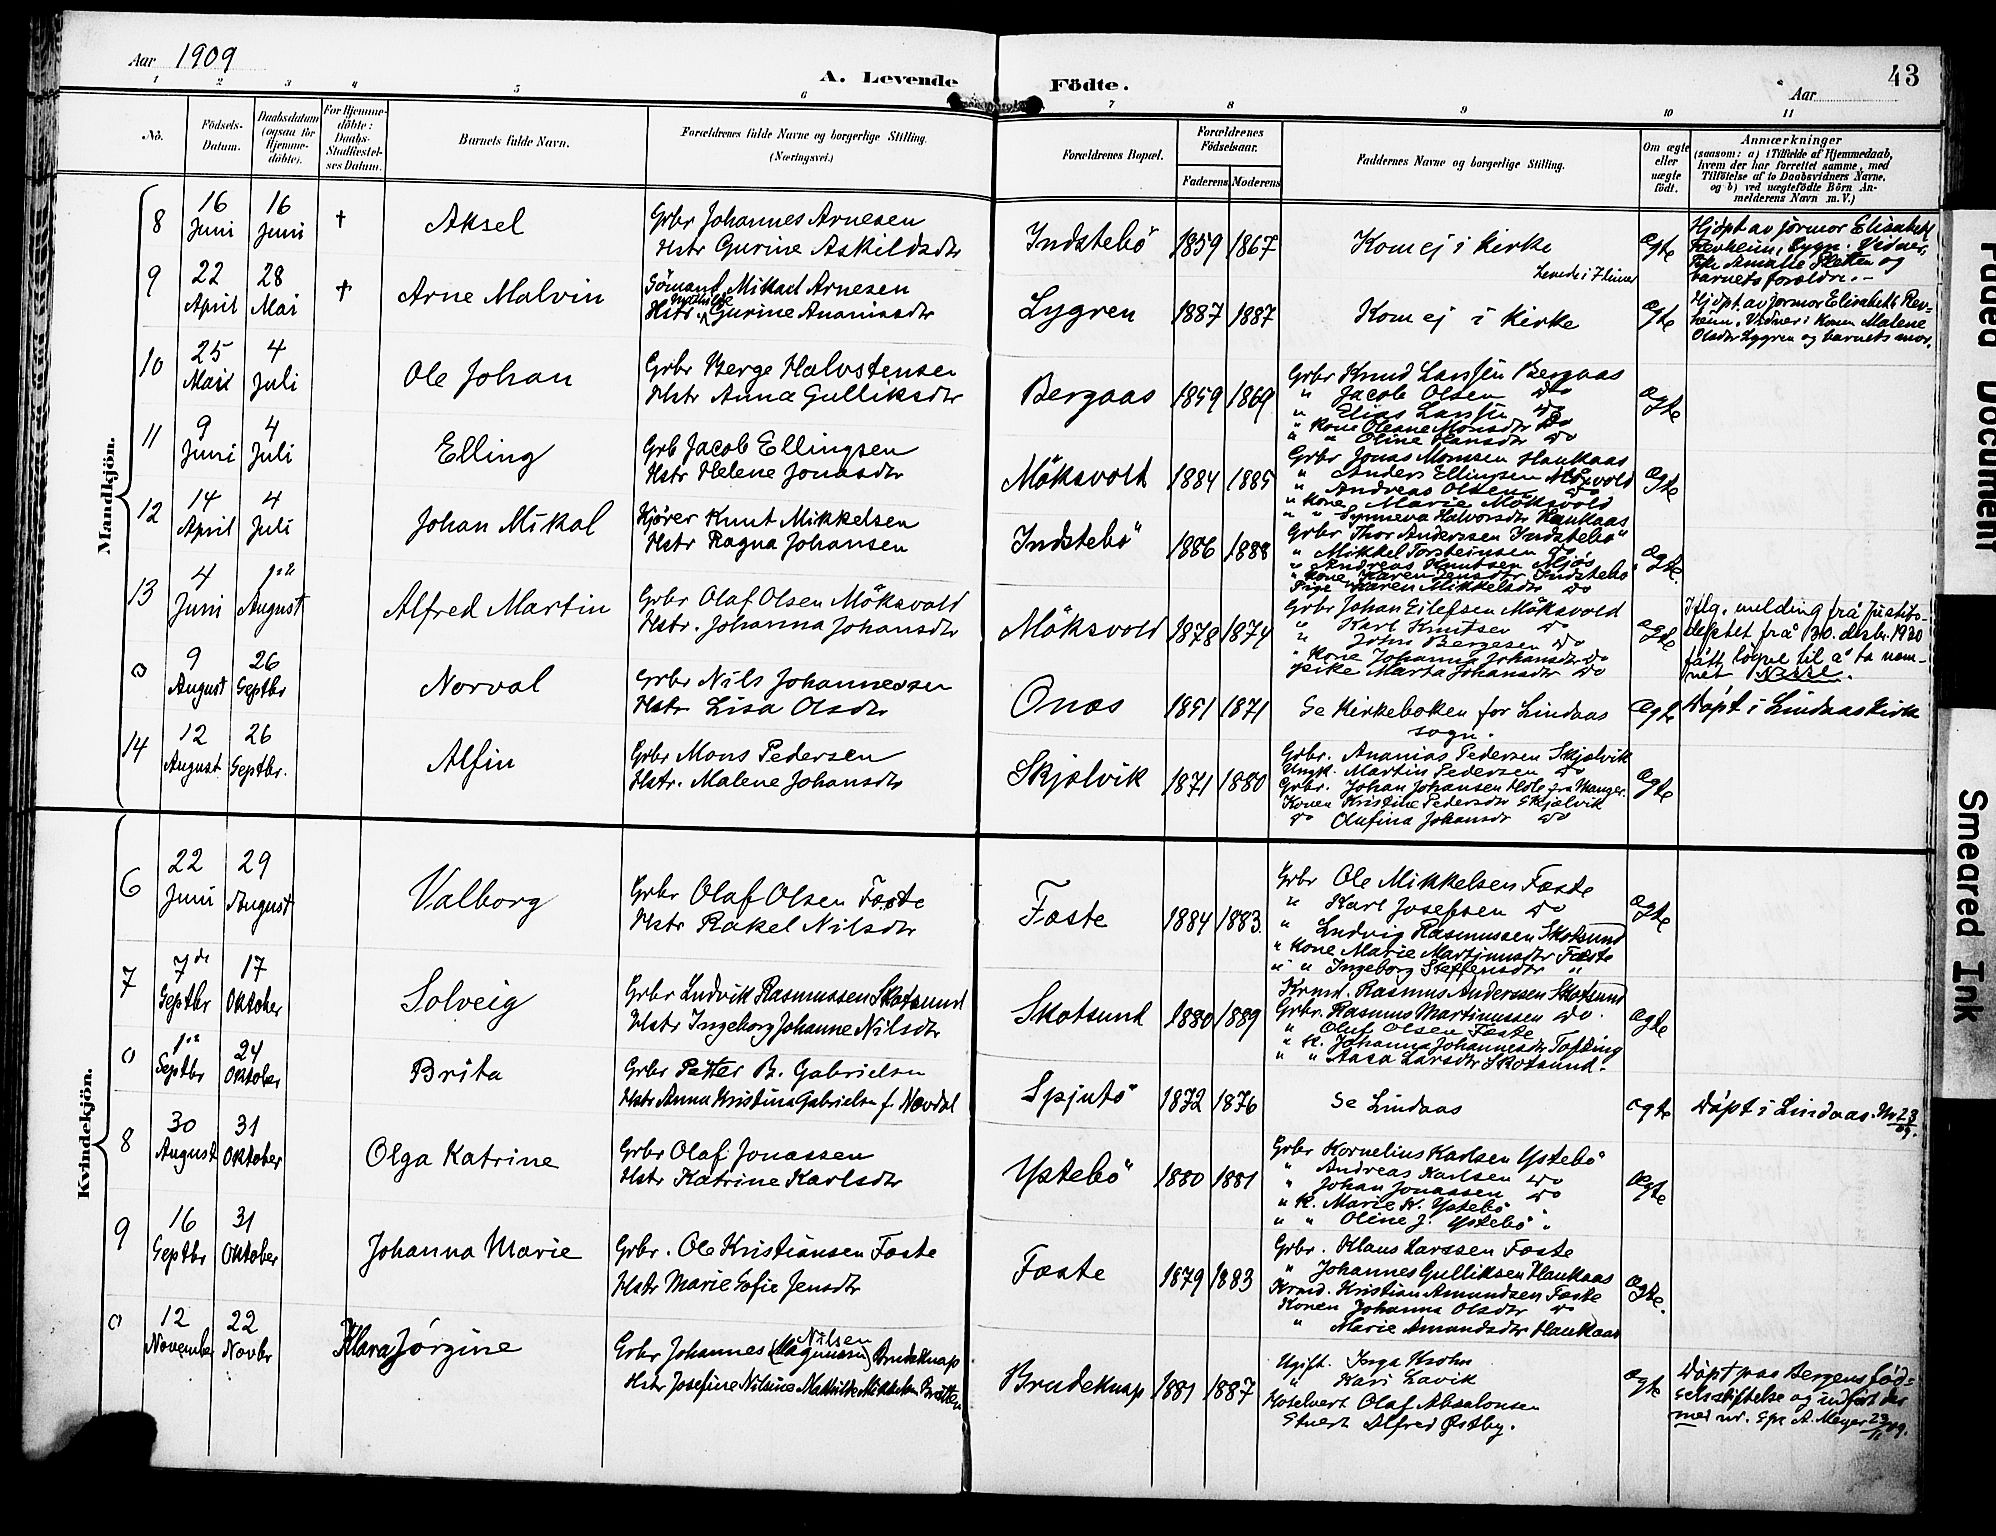 Aar 1909
A. Levende Födte.
43
Aar
1 2 3 4 5 6 7 8 9 10 11
No.
Födsels-Datum.
Daabsdatum (ogsaa for Hjemme-döbte).
For Hjemme-döbte: Daabs-Stadfæstel-ses Datum.
Barnets fulde Navn.
Forældrenes fulde Navne og borgerlige Stilling. (Næringsvei.)
Forældrenes Bopæl.
Forældrenes Födselsaar.
Faderens Moderens
Faddernes Navne og borgerlige Stilling.
Om ægte eller uægte födt.
Anmærkninger
(saasom: a) i Tilfælde af Hjemmedaab,
hvem der har forrettet samme, med
Tilföielse af to Daabsvidners Navne,
og b) ved uægtefödte Börn An-
melderens Navn m. V.)
Mandkjön.
8 16 Juni 16 Juni † Aksel
Grbr Johannes Arnesen
Hstr Gurine Askildsdtr
Indstebö 1859 1867 Kom ej i kirke ægte
Hjdpt av jormor Elisabeth
Revheim, Lygn. Vidner,
Pike Amalie Sletten og
barnets forældre.-
9 22 April 28 Mai † Arne Malvin
Sömand Mikael Arnesen
Hstr. Mathilde Gurine Ananiasdtr
Lygren 1887 1887 Kom ej i kirke ægte
Levede i 7 timer
Hjdpt av jormor Elisabeth Rev-
heim. Vidner: Konen Malene
Olsdtr Lygren og barnets mor.
10 25 Mai 4 Juli Ole Johan
Grbr Berge Halvstensen
Hstr Anna Gulliksdtr
Bergaas 1859 1869
Grbr Knud Larssen Bergaas
" Jacob Olsen do
" Elias Larssen do
" Kone Oleane Monsdtr do
" " Oline Hansdtr do
ægte
11 9 Juni 4 Juli Elling
Grb Jacob Ellingsen
Hstr Helene Jonasdtr
Möksvold 1884 1885
Grbr Jonas Monssen Haukaas
" Anders Ellingsen Möksvold
" Andreas Olsen do
" Kone Marie Möksvold
" " Synneva Halvorsdtr Haukaas
ægte
12 14 April 4 Juli Johan Mikal
Kjörer Knut Mikkelsen
Hstr Ragna Johansen
Indstebö 1886 1888
Grbr Thor Anderssen Indstebö
" Mikkel Torsteinsen do
" Andreas Knutsen Mjös
" Kone Karen Jensdtr Indstebö
Pige Karen Mikkelsdtr do
ægte.
13 4 Juni 1ste August Alfred Martin
Grbr Olaf Olsen Möksvold
Hstr. Johanna Johansdtr
Möksvold 1878 1874
Grbr Johan Eilefsen Möksvold
" Karl Knutsen do
" John Bergesen do
" Kone Johanna Johansdtr do
pike Marta Johansdtr do
ægte
Iflg. melding frå Justits-
deptet frå 30. desbr. 1920
fått lögve til å ta nam-
net
0 9 August 26 Septbr Norval
Grbr Nils Johannessen
Hstr Lisa Olsdtr
Onæs 1851 1871
Se Kirkeboken for Lindaas sogn.
ægte
Döpt i Lindaas kirke
14 12 August 26 Septbr. Alfin
Grbr Mons Pedersen
Hstr. Malene Johansdtr
Skjælvik 1871 1880
Grbr. Ananias Pedersen Skjelvik
Ungk. Martin Pedersen do
Grbr. Johan Johansen Holo fra Manger.
Konen Kristine Pedersdtr Skjælvik
do Olufina Johansdr do
ægte
Kvindekjön.
6 22 Juni 29 August Valborg
Grbr Olaf Olsen Fæste
Hstr Rakel Nilsdtr
Fæste 1884 1883.
Grbr Ole Mikkelsen Fæste
" Karl Josefsen do
" Ludvig Rasmussen Skotsund
" Kone Marie Martinusdtr Fæste
" " Ingeborg Steffensdtr "
ægte
7 7de Septbr 17 Oktober Solveig
Grbr Ludvik Rasmussen Skotsund
Hstr Ingeborg Johanne Nilsdtr
Skotsund 1880 1889
Krmd. Rasmus Anderssen Skotsund
Grbr. Rasmus Martinussen do.
" Oluf Olsen Fæste
" K. Johanna Johannesdtr Tofting
" " Aasa Larsdtr Skotsund.
ægte
0 1ste Septbr 24 Oktober Brita
Grbr Petter B. Gabrielsen
Hstr Anna Kristina Gabrielsen f. Nævdal
Spjutö 1872 1876 Se Lindaas ægte
Döpt i Lindaas. Nr 23/09.
8 30 August 31 Oktober Olga Katrine
Grbr Olaf Jonassen
Hstr Katrine Karlsdtr
Ystebö 1880 1881
Grbr Kornelius Karlsen Ystebö
" Andreas Karlsen do
" Johan Jonassen do
" K. Marie K. Ystebö
" " Oline J. Ystebö "
ægte
9 16 Septbr 31 Oktober Johanna Marie
Grbr. Ole Kristiansen Fæste
Hstr Marie Sofie Jensdtr
Fæste 1879 1883
Grbr. Klaus Larssen Fæste
" Johannes Gulliksen Haukaas
Krmd. Kristian Amundsen Fæste
Konen Johanna Olsdtr do
" Marie Amundsdtr Haukaas
ægte.
0 12 November 22 Novbr Klara Jörgine
Grbr Johannes Nilsen (Magnussen) Brudeknap
Hstr Josefine Nilsine Mathilde Mikkelsen Bratten
Brudeknap 1881 1887
Ugift. Inga Krohn
" Kari Lavik
Hotelvert Olaf Absalonsen
Stuert Alfred Østby.
ægte
Döpt paa Bergens föd-
selsstiftelse og indfört der
med nr. Spr A. Meyer 23/11 09.
Faded Document
Smeared Ink